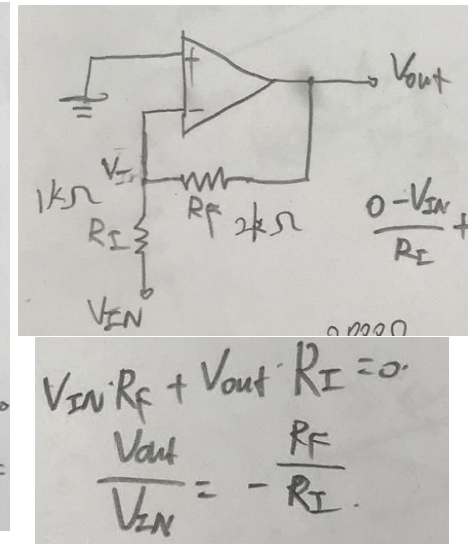 +
−
Vout
V-
1kΩ
RF 2kΩ
RI
VIN
0-VIN
RI
+
VIN·RF + Vout·RI=0.
Vout
VIN
= -
RF
RI.